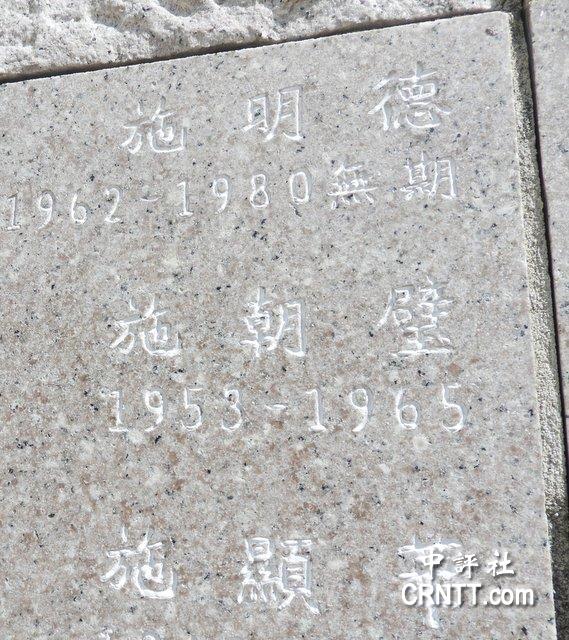 施明德
1962-1980無期
施朝璧
1953-1965
施顯華
中評社
CRNTT.com